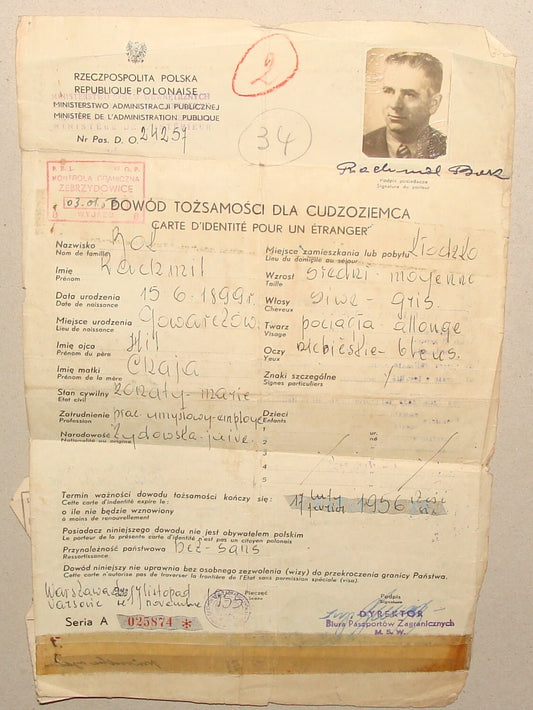 2
RZECZPOSPOLITA POLSKA
REPUBLIQUE POLONAISE
MINISTERSTWO ADMINISTRACJI PUBLICZNEJ
MINISTÈRE DE L'ADMINISTRATION PUBLIQUE
Nr Pas. D. O. 24257
34
Podpis posiadacza
Signature du porteur
KONTROLA GRANICZNA
ZEBRZYDOWICE
DOWÓD TOŻSAMOŚCI DLA CUDZOZIEMCA
CARTE D'IDENTITÉ POUR UN ÉTRANGER
Nazwisko
Nom de famille
Imię
Prénom
Data urodzenia 15 6. 1899 r.
Date de naissance
Miejsce urodzenia
Lieu de naissance
Imię ojca
Prénom du père
Imię matki
Prénom de la mère
Stan cywilny żonaty - marié
Etat civil
Zatrudnienie prac. umysłowy - employé
Profession
Narodowość Żydowska - juive
Nationalité au origine
Miejsce zamieszkania lub pobytu Kłodzko
Lieu du domicile au séjour
Wzrost średni - moyenne
Taille
Włosy siwe - gris.
Cheveux
Twarz pociągła - allongé
Visage
Oczy niebieskie - bleus.
Yeux
Znaki szczególne /
Signes particuliers
Dzieci
Enfants
ur.
né
1
2
3
4
5
Termin ważności dowodu tożsamości kończy się: 17 luty 1956
Cette carte d'indentité expire le: février
o ile nie będzie wznowiony
à moins de renouvellement
Posiadacz niniejszego dowodu nie jest obywatelem polskim
Le porteur de la présente carte d'identité n'est pas un citoyen polonais
Przynależność państwowa bez - sans
Ressortissance
Dowód niniejszy nie uprawnia bez osobnego zezwolenia (wizy) do przekroczenia granicy Państwa.
Cette carte n'autorise pas de traverser la frontière de l'Etat sans permission spéciale (visa).
Warszawa listopad 1955
Varsovie novembre
Pieczęć
Podpis
Signature
DYREKTOR
Biura Paszportów Zagranicznych
M. S. W.
Seria A 025874 *